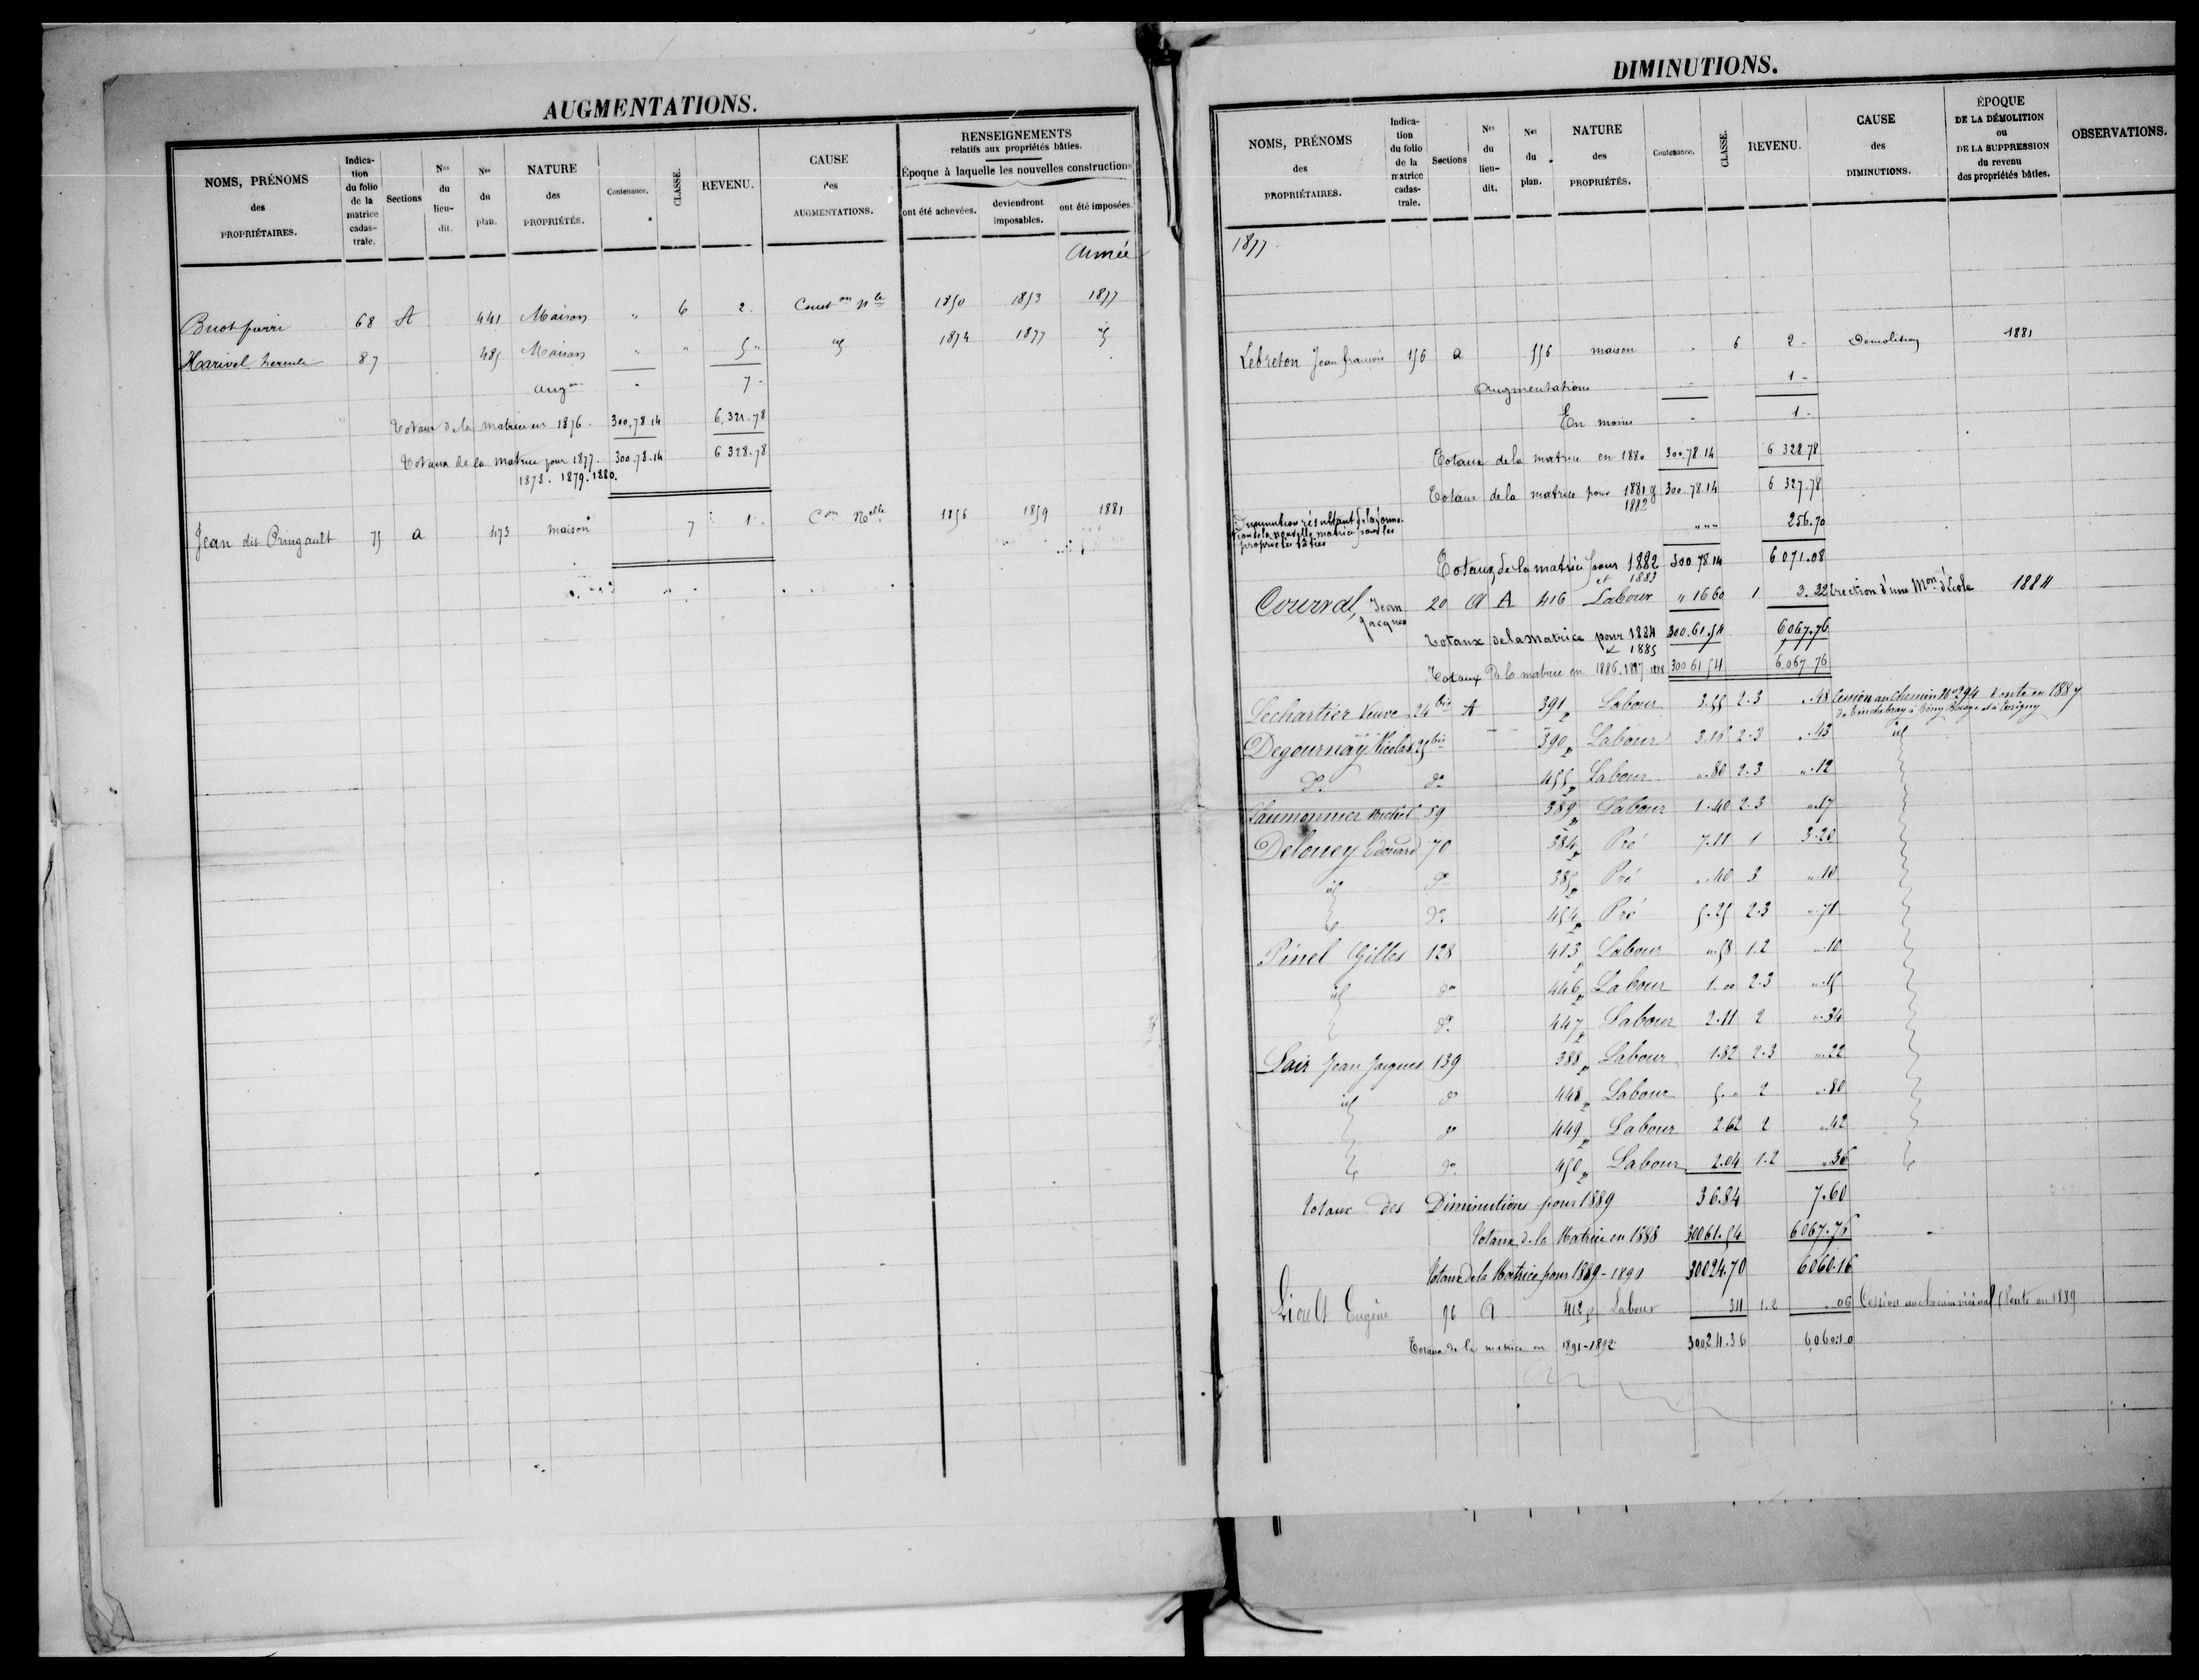 AUGMENTATIONS.
NOMS, PRÉNOMS des PROPRIÉTAIRES.
Indication du folio de la matrice cadastrale.
Sections
Nos du lieu-dit.
Nos du plan.
NATURE des PROPRIÉTÉS.
Contenance.
CLASSE.
REVENU.
CAUSE des AUGMENTATIONS.
RENSEIGNEMENTS relatifs aux propriétés bâties.
Époque à laquelle les nouvelles constructions
ont été achevées.
deviendront imposables.
ont été imposées.
Année
Buot pierre 68 A 441 Maison " 6 2. Const on nle 1850 1853 1877
Harivel hercule 87 485 Maison " " 5 " id 1874 1877 id
Augon " 7 -
Totaux de la matrice en 1876. 300,78.14 6,321.78
Totaux de la matrice pour 1877. 300.78.14 6 328.78
1878. 1879. 1880.
Jean dit Pringault 75 a 473 maison 7 1 - Con Nelle 1856 1859 1881
DIMINUTIONS.
NOMS, PRÉNOMS des PROPRIÉTAIRES.
Indication du folio de la matrice cadastrale.
Sections
Nos du lieu-dit.
Nos du plan.
NATURE des PROPRIÉTÉS.
Contenance.
CLASSE.
REVENU.
CAUSE des DIMINUTIONS.
ÉPOQUE DE LA DÉMOLITION ou DE LA SUPPRESSION du revenu des propriétés bâties.
OBSERVATIONS.
1877.
Lebreton Jean francois 156 a 556 maison - 6 2 - Démolition 1881
Augmentations - 1 -
En moins - 1 -
Totaux de la matrice en 1880 300.78.14 6 328.78
Totaux de la matrice pour 1881 & 300.78.14 6 327.78
1882
Diminution résultant de la forma-
tion de la nouvelle matrice pour les
propriétés bâties " " " 256.70
Totaux de la matrice pour 1882 300 78 14 6 071.08
et 1883
Courval, Jean Jacques 20 A 416 Labour " 16 60 1 3. 32 Erection d'une Mon d'École 1884
Totaux de la matrice pour 1884 300.61.54 6067.76
& 1885
Totaux de la matrice en 1886.1887.1888 300 61 54 6 067 76
Lechartier Veuve 24 bis A 391 p Labour 3.55 2.3 ".48 Cession au Chemin No 294 Vente en 1887
de Tinchebray à Bény Bocage et à Torigny
Degournay Nicolas 25 bis 390 p Labour 3.16 2.3 ".43 id
do do 455 p Labour ".80 2.3 ".12
Laumonnier Michel 59 389 p Labour 1.40 2.3 ".17
Delouey Edouard 70 384 p Pré 7.11 1 3.20
id do 385 p Pré ".40 3 ".10
do 454 p Pré 5.25 2.3 ".71
Pinel Gilles 128 413 p Labour ".58 1.2 ".10
id do 446 p Labour 1.00 2.3 ".15
do 447 p Labour 2.11 2 ".34
Lair Jean Jacques 139 388 p Labour 1.82 2.3 ".22
id do 448 p Labour 5." 2 ".80
do 449 p Labour 2.62 2 ".42
do 450 p Labour 2.04 1.2 ".36
Totaux des Diminutions pour 1889 36.84 7.60
Totaux de la Matrice en 1888 30061.54 6067.76
Totaux de la Matrice pour 1889-1890 30024.70 6060.16
Lioult Eugène 96 A 412 p Labour 1.2 ".06 Cession au chemin vicinal (Vente en 1889
Totaux de la matrice en 1891-1892 30024.36 6060.10